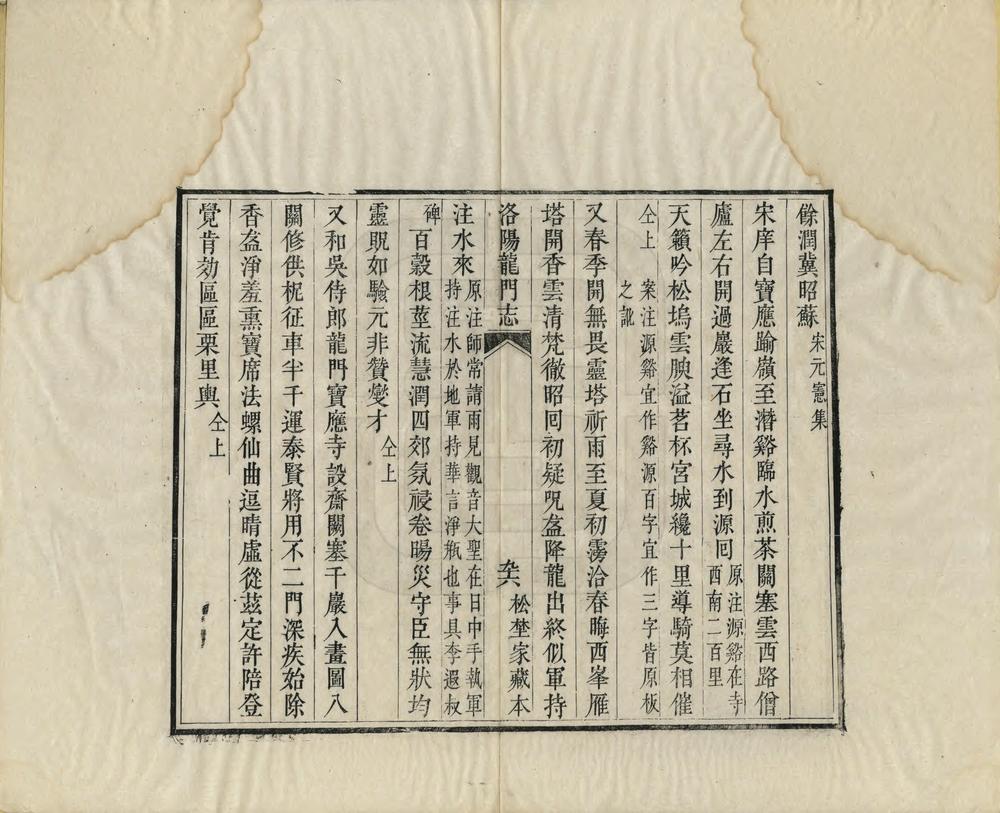 餘潤冀昭蘇宋元憲集
宋庠自寶應踰嶺至潛谿臨水煎茶闗塞雲西路僧
廬左右開過巖逢石坐尋水到源回原注源谿在寺西南二百里
天籟吟松塢雲腴溢茗杯宮城纔十里導騎莫相催
仝上案注源谿宜作谿源百字宜作三字皆原板之訛
又春季開無畏靈塔祈雨至夏初霶洽春晦西峯雁
塔開香雲清梵徹昭回初疑呪盋降龍出終似軍持
洛陽龍門志
六
松埜家藏本
注水來原注師常請雨見觀音大聖在日中手執軍持注水於地軍持華言淨瓶也事具李遐叔碑
百穀根莖流慧潤四郊氛祲卷暘災守臣無狀均
靈貺如驗元非贊燮才仝上
又和吳侍郎龍門寶應寺設齋闗塞千巖入畫圖八
關修供柅征車半千運泰賢將用不二門深疾始除
香盋淨羞熏寶席法螺仙曲逗晴虛從茲定許陪登
覺肯効區區栗里輿仝上